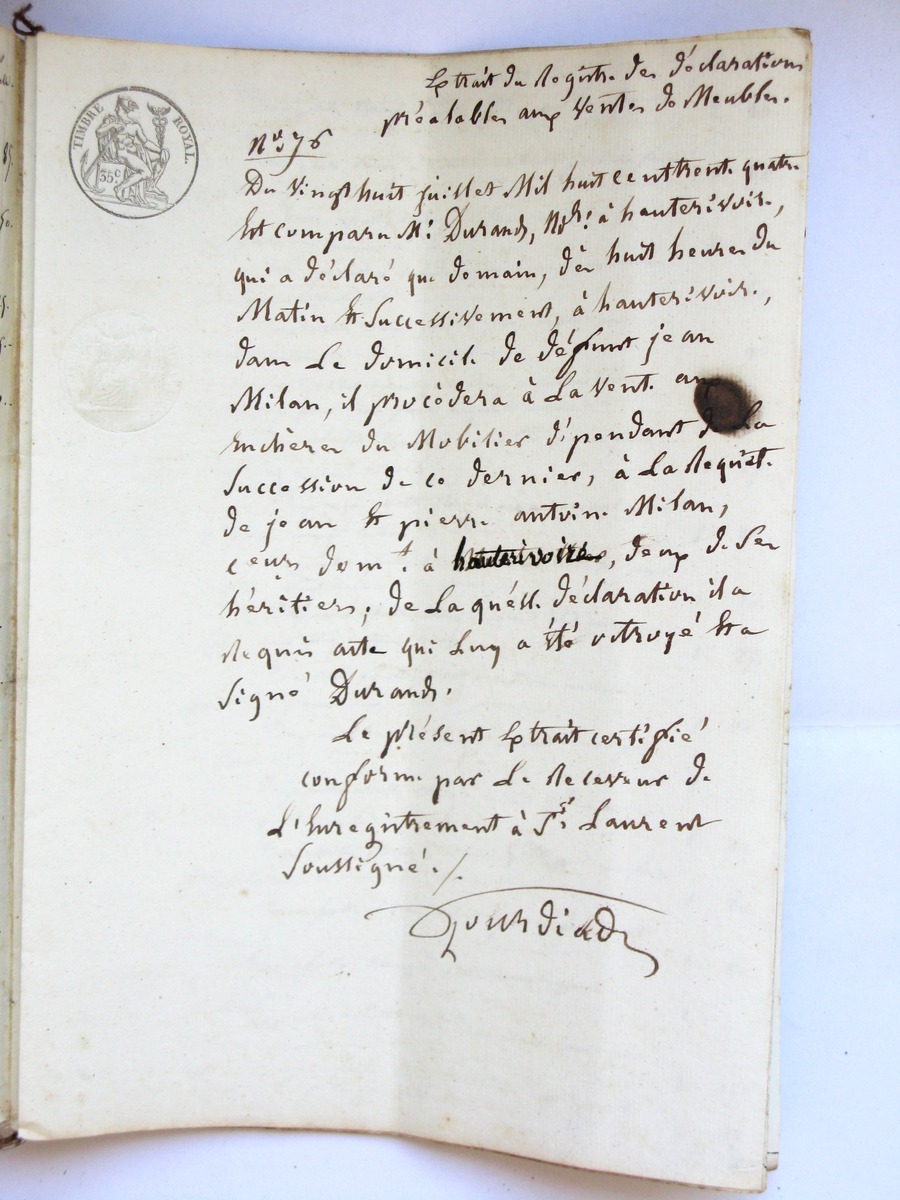 TIMBRE ROYAL.
35c
Extrait du Registre des déclarations
préalables aux ventes de Meubles.
No. 76
Du vingt huit juillet Mil huit cent trent quatre
Est comparu Mr. Durand, Nre. à hauterivoire,
qui a déclaré que demain, dès huit heures du
Matin Et Successivement, à hauterivoire,
dans Le domicile de défunt jean
Milan, il procédera à La vente aux
Enchères du Mobilier dépendant de La
Succession de ce dernier, à La Requête
de jean Et pierre antoine Milan,
domt. à hauterivoire, deux de Ses
héritiers; de Laquélle déclaration il a
Requis acte qui Luy a été octroyé Et a
Signé Durand.
Le présent Extrait certifié
conforme par Le Receveur de
L'Enregistrement à St. Laurent
Soussigné./.